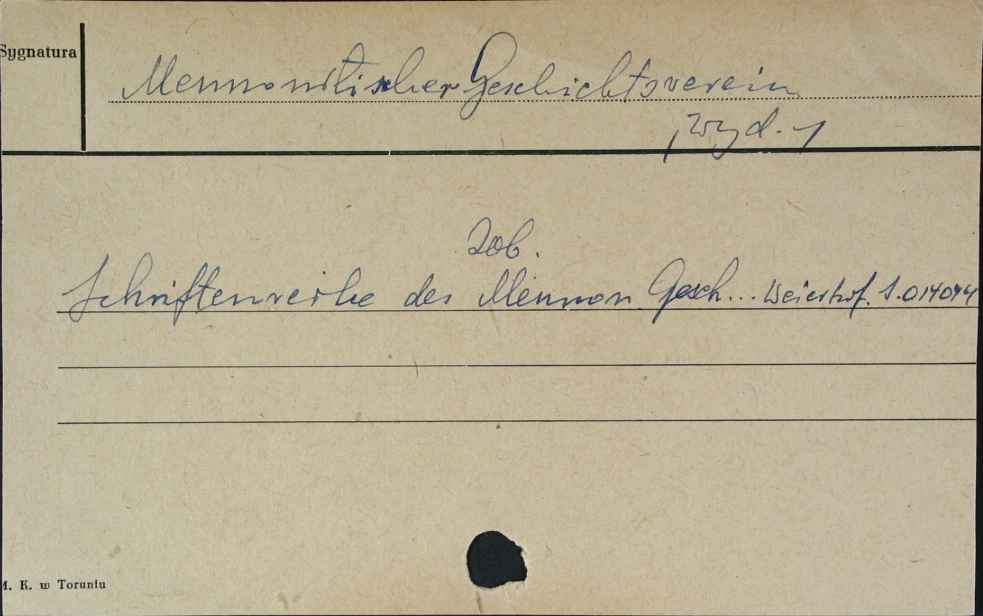 Sygnatura
Mennonitischer Geschichtsverein
, wyd. 1
Zob.
Schriftenreihe des Mennon. Gesch... Weierhof. S.014044
M. K. w Toruniu